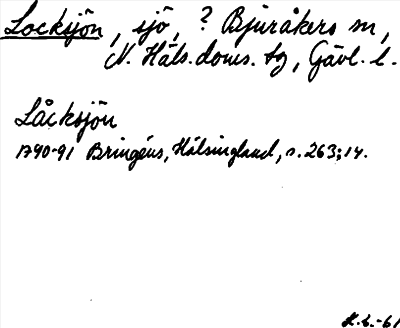 Locksjön, sjö, ? Bjuråkers sn,
N. Häls. doms. tg, Gävl. l.
Låcksjön
1790-91 Bringéus, Hälsingland, s. 263; 14.
H.L.-61